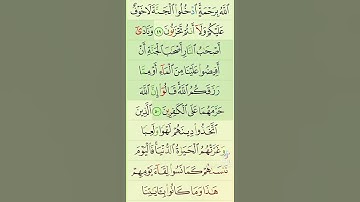 ٱللَّهُ بِرَحْمَةٍ ٱدْخُلُوا۟ ٱلْجَنَّةَ لَا خَوْفٌ
عَلَيْكُمْ وَلَآ أَنتُمْ تَحْزَنُونَ ٤٩ وَنَادَىٰٓ
أَصْحَٰبُ ٱلنَّارِ أَصْحَٰبَ ٱلْجَنَّةِ أَنْ
أَفِيضُوا۟ عَلَيْنَا مِنَ ٱلْمَآءِ أَوْ مِمَّا
رَزَقَكُمُ ٱللَّهُ قَالُوٓا۟ إِنَّ ٱللَّهَ
حَرَّمَهُمَا عَلَى ٱلْكَٰفِرِينَ ٥٠ ٱلَّذِينَ
ٱتَّخَذُوا۟ دِينَهُمْ لَهْوًا وَلَعِبًا
وَغَرَّتْهُمُ ٱلْحَيَوٰةُ ٱلدُّنْيَا فَٱلْيَوْمَ
نَنسَىٰهُمْ كَمَا نَسُوا۟ لِقَآءَ يَوْمِهِمْ
هَٰذَا وَمَا كَانُوا۟ بِـَٔايَٰتِنَا